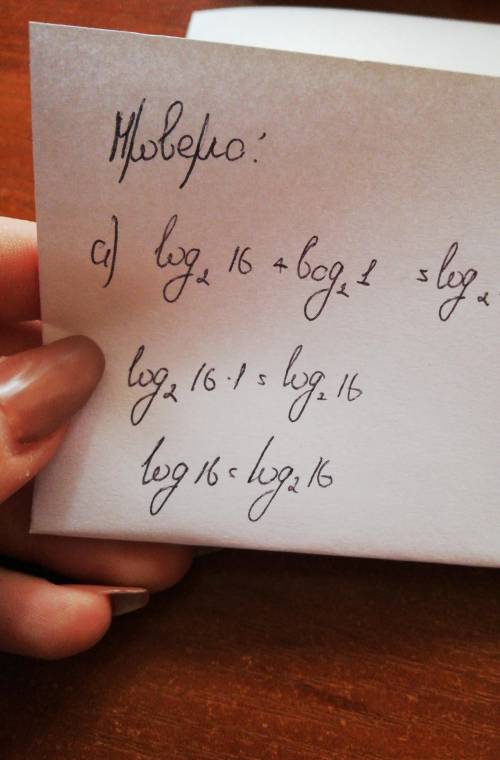 Проверка:
а) log₂ 16 + log₂ 1 = log₂
log₂ 16·1 = log₂ 16
log 16 = log₂ 16